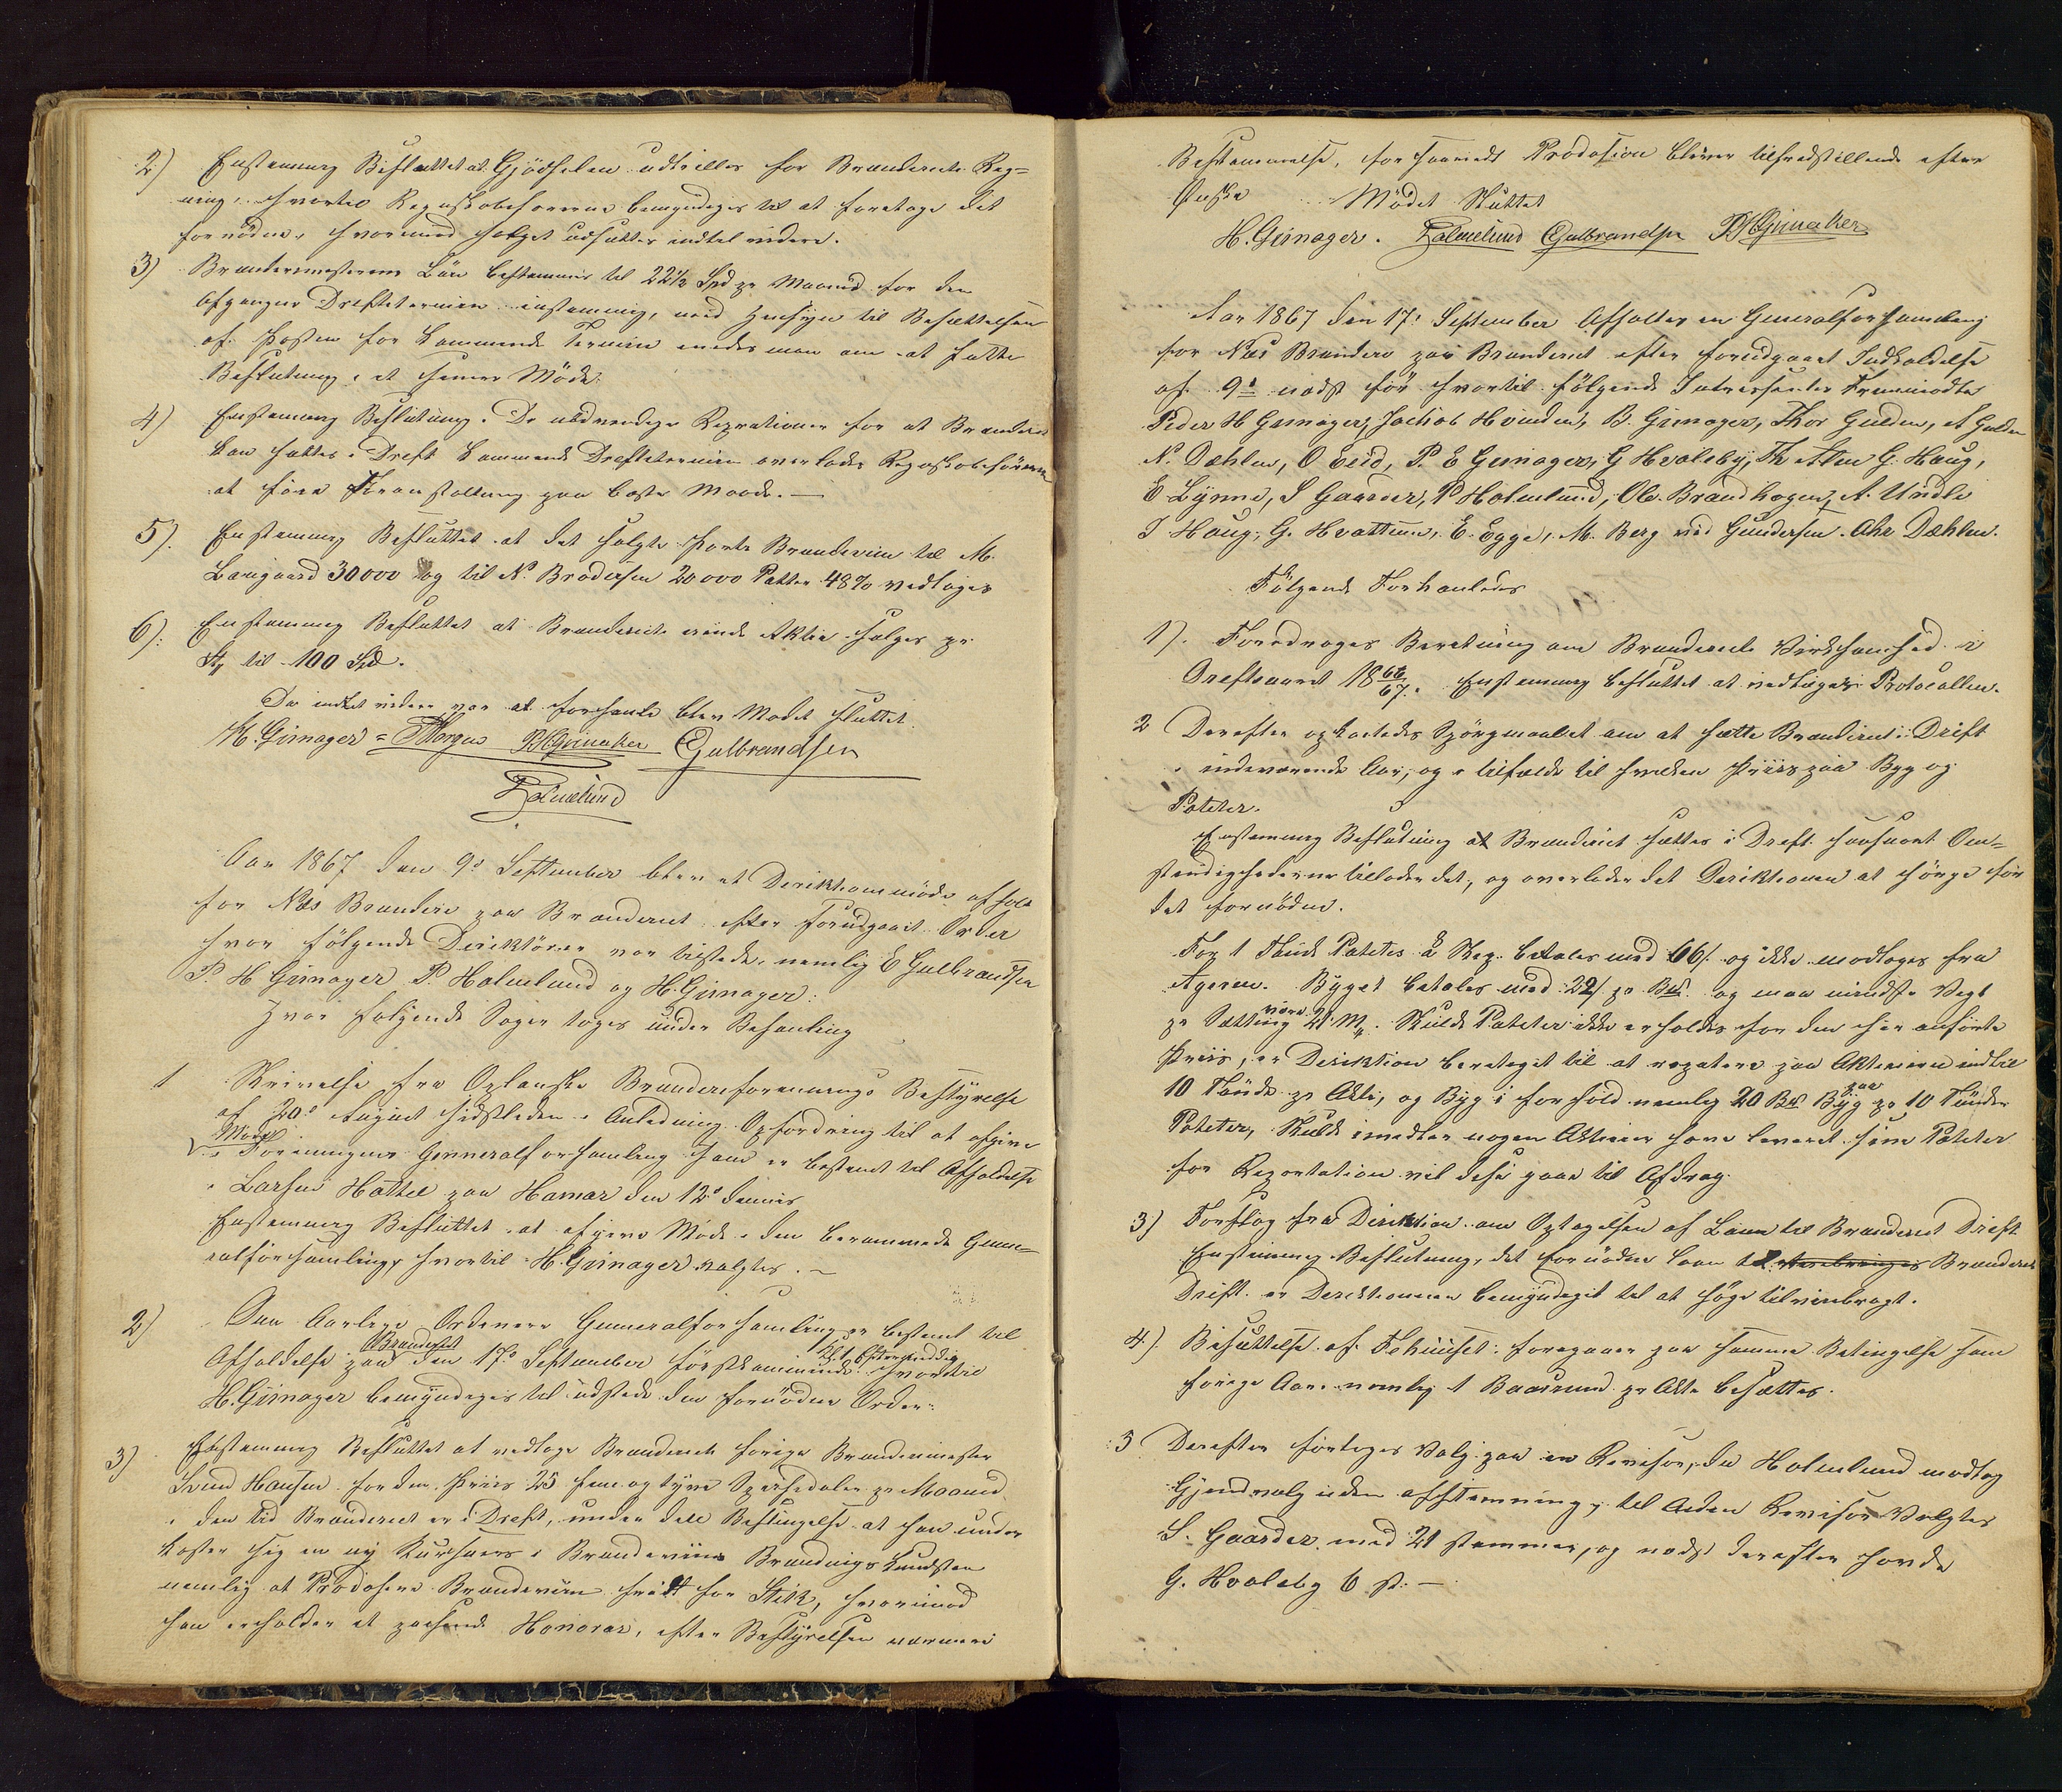 2) Enstemmig Besluttet at Gjödselen udskilles for Brænderiets Reg=
ning, hvortil Regnskabsföreren bemyndiges til at foretage det
fornödne, hvormed Salget udsættes indtil videre.
3) Brændemesterens Lön bestemmes til 22½ Spd pr Maaned for den
afgangne Driftstermin enstemmig, med Hensyn til Besættelsen
af Posten for kommende Termin enedes man om at fatte
Beslutning i et senere Möde.
4) Enstemmig Beslutning. De nödvendige Reprationer for at Brænderiet
kan sættes i Drift kommende Driftstermin overlades Regnskabsföreren
at före Foranstaltning paa beste Maade. —
5). Enstemmig Besluttet at det solgte Partie Brændeviin til M.
Laugaard 30000 og til N. Brodersen 20000 Potter 48% vedtages
6): Enstemmig Besluttet at Brænderiets eiende Aktier sælges pr.
Stk til 100 Spd.
Da intet videre var at forhandle blev Mödet sluttet.
H. Gimager = Horgen PHGrimaker EGulbrandsen
PHolmlund
Aar 1867 den 9de September blev et Direktionsmöde afholdt
for Næs Brænderi paa Brænderiet efter forudgaaet Order
hvor fölgende Direktörer var tilstede, nemlig E Gulbrandsen
P. H Gimager P. Holmlund og H. Gimager:
Hvor fölgende Sager toges under Behandling
1 Skrivelse fra Oplandske Brænderiforenings Bestyrelse
af 20de August sidstleden i Anledning Opfordring til at afgive
Möde
i Foreningens Generalforsamling som er bestemt til Afholdelse
i Larsens Hottel paa Hamar den 12te dennes
Enstemmig Besluttet at afgive Möde i den berammede Gene=
ralforsamling, hvortil H. Gimager valgtes. —
2) Den Aarlige Ordenære Generalforsamling er bestemt til
Brænderiet Kl. 4 Eftermiddag
Afholdelse paa den 17de September förstkommende hvortil
H. Gimager bemyndiges til udstede den fornödne Order.
3) Enstemmig Besluttet at vedtage Brænderiets forige Brændemester
Svend Hansen for den Priis 25 fem og tyve Speciedaler pr Maaned
i den tid Brænderiet er i Drift, under den Betingelse at han under
kaster sig en ny Kursuus i Brændeviins Brændings Kundsten
nemlig at Prodosere Brændeviin friidt for Stik, hvorimod
han erholder et passende Honorar, efter Bestyrelsen nærmere
Bestemmelse, for saavidt Prodosion bliver tilfredstillende efter
Önske Mödet Sluttet
H. Gimager. PHolmlund EGulbrandsen PHGrimaker
Aar 1867 den 17de September afholtes en Generalforsamling
for Næs Brænderi paa Brænderiet efter forudgaaet Indkaldelse
af 9de næst för hvortil fölgende Interessenter Fremmödte
Peder H Gimager, Jachob Hvinden, B. Gimager, Thor Gulden, A Gulden
N. Dæhlen, O Eeid, P. E Gimager, G Hvaleby, Th Alm G. Haug,
E Lÿnne, S Gaarder, P Holmlund, Ole. Brandhagen, A. Undli
I Haug, G. Hvattum, E. Egge, M. Berg ved Gundersen. Chr Dæhlen.
Fölgende Forhanledes
1). Foredroges Beretning om Brænderiets Virksomhed i
Driftsaaret 1866/67. Enstemmig besluttet at vedtages Protocollen.
2 Derefter opkastedes Spörgmaalet om at sætte Brænderiet i Drift
i indeværende Aar, og i tilfælde til hvilken Priis paa Byg og
Poteter.
Enstemmig Beslutning at Brænderiet sættes i Drift saasnart Om=
stændighederne tillader det, og overlader det Direktionen at sörge for
det fornödne.
For 1 Tönde Potetes á Skp. betales med 66/ og ikke modtages fra
Ageren. Bÿget betales med 22/ pr Bs. og maa mindste Vegt
være
pr Sætting 21 M. Skulde Poteter ikke erholdes for den her anförte
Priis, er Direktion berettiget til at repatere paa Aktierne indtil
paa
10 Tönde pr Aktie, og Byg i forhold nemlig 20 Bs Byg pr 10 Tönder
Poteter, Skulde imedler nogen Aktieeier have leveret sine Poteter
for Repartation vil disse gaae til Afdrag.
3) Forslag fra Direktion om Optagelsen af Laan til Brænderiet Drift
Enstemmig Beslutning, det fornödne laan til Brænderiets
Drift er Direktionen bemyndiget til at söge tilveiebragt.
4). Besættelse af Fehuuset: foregaaer paa samme Betingelse som
forige Aar. nemlig 1 Baasrund pr Aktie besættes.
5 Derefter foretoges Valg paa en Revisor, da Holmlund modtog
Gjendvalg uden afstemning, til Anden Revisor Valgtes
S. Gaarder med 21 stemmer, og næst derefter havde
G. Hvaleby 6 st. —